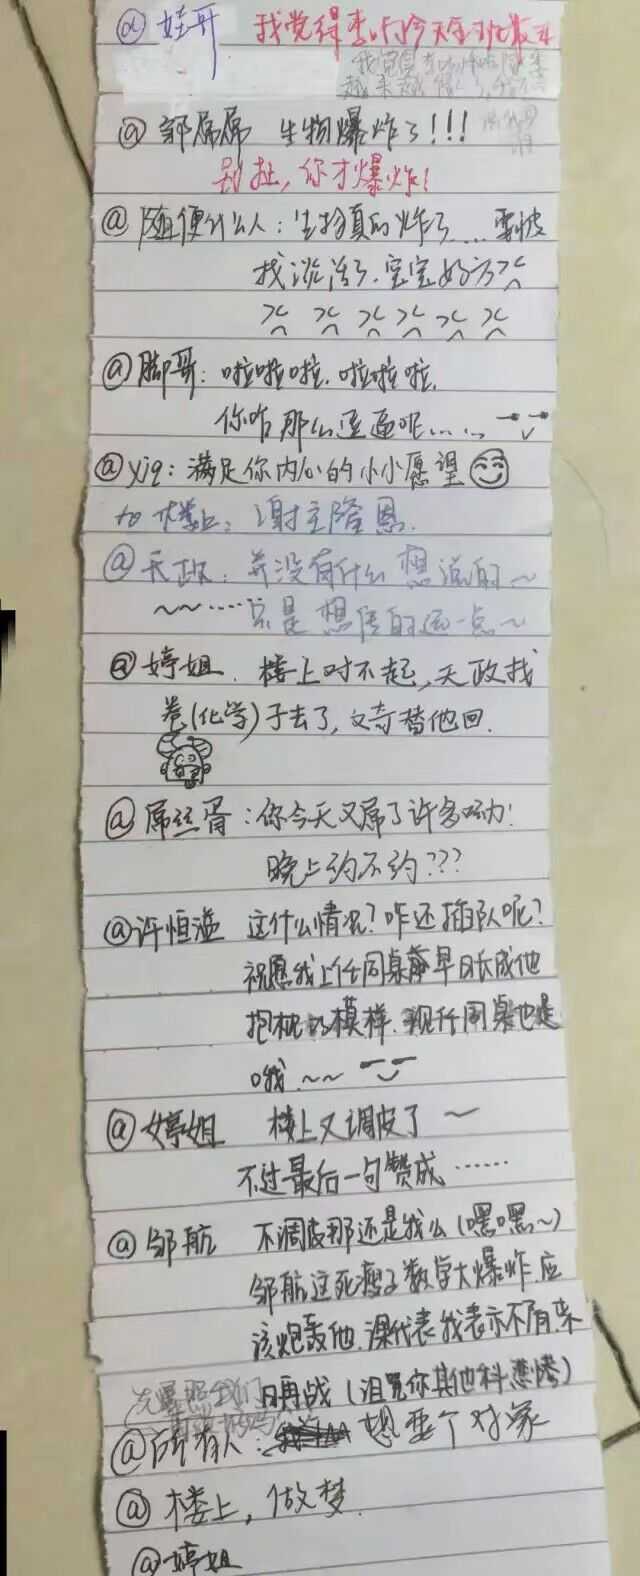 @娃哥 我觉得李 今天
我觉得
越来越
@郭屌屌 生物爆炸了!!!
别扯,你才爆炸!
@随便什么人:生物真的炸了.... 要被
找谈话了.宝宝好方
@脚哥:啦啦啦.啦啦啦.
你咋那么逗逼呢……
@yjq:满足你内心的小小愿望
to 楼上:谢主隆恩.
@天政:并没有什么想说的~
~~……只是想传的远一点~
@婷姐.楼上对不起,天政找
卷(化学)子去了,文奇替他回.
@屌丝胥:你今天又屌了许多呦!
晚上约不约???
@许恒溢 这什么情况?咋还插队呢?
祝愿我上任同桌 早日长成他
抱枕的模样.现任同桌也是
哦.~~
@婷姐 楼上又调皮了~
不过最后一句赞成……
@邹航 不调皮那还是我么(嘿嘿~)
邹航这死瘦子数学大爆炸应
该炮轰他.课代表我表示不 来
日再战(诅咒你其他科 烤)
先爆照我们
再 好吗
@所有人: 想要个对象
@楼上,做梦.
@婷姐